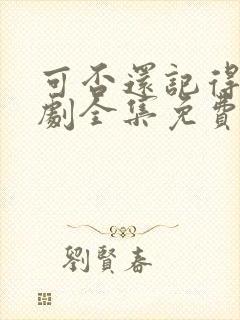 可否還記得
劇全集免費
劉賢春